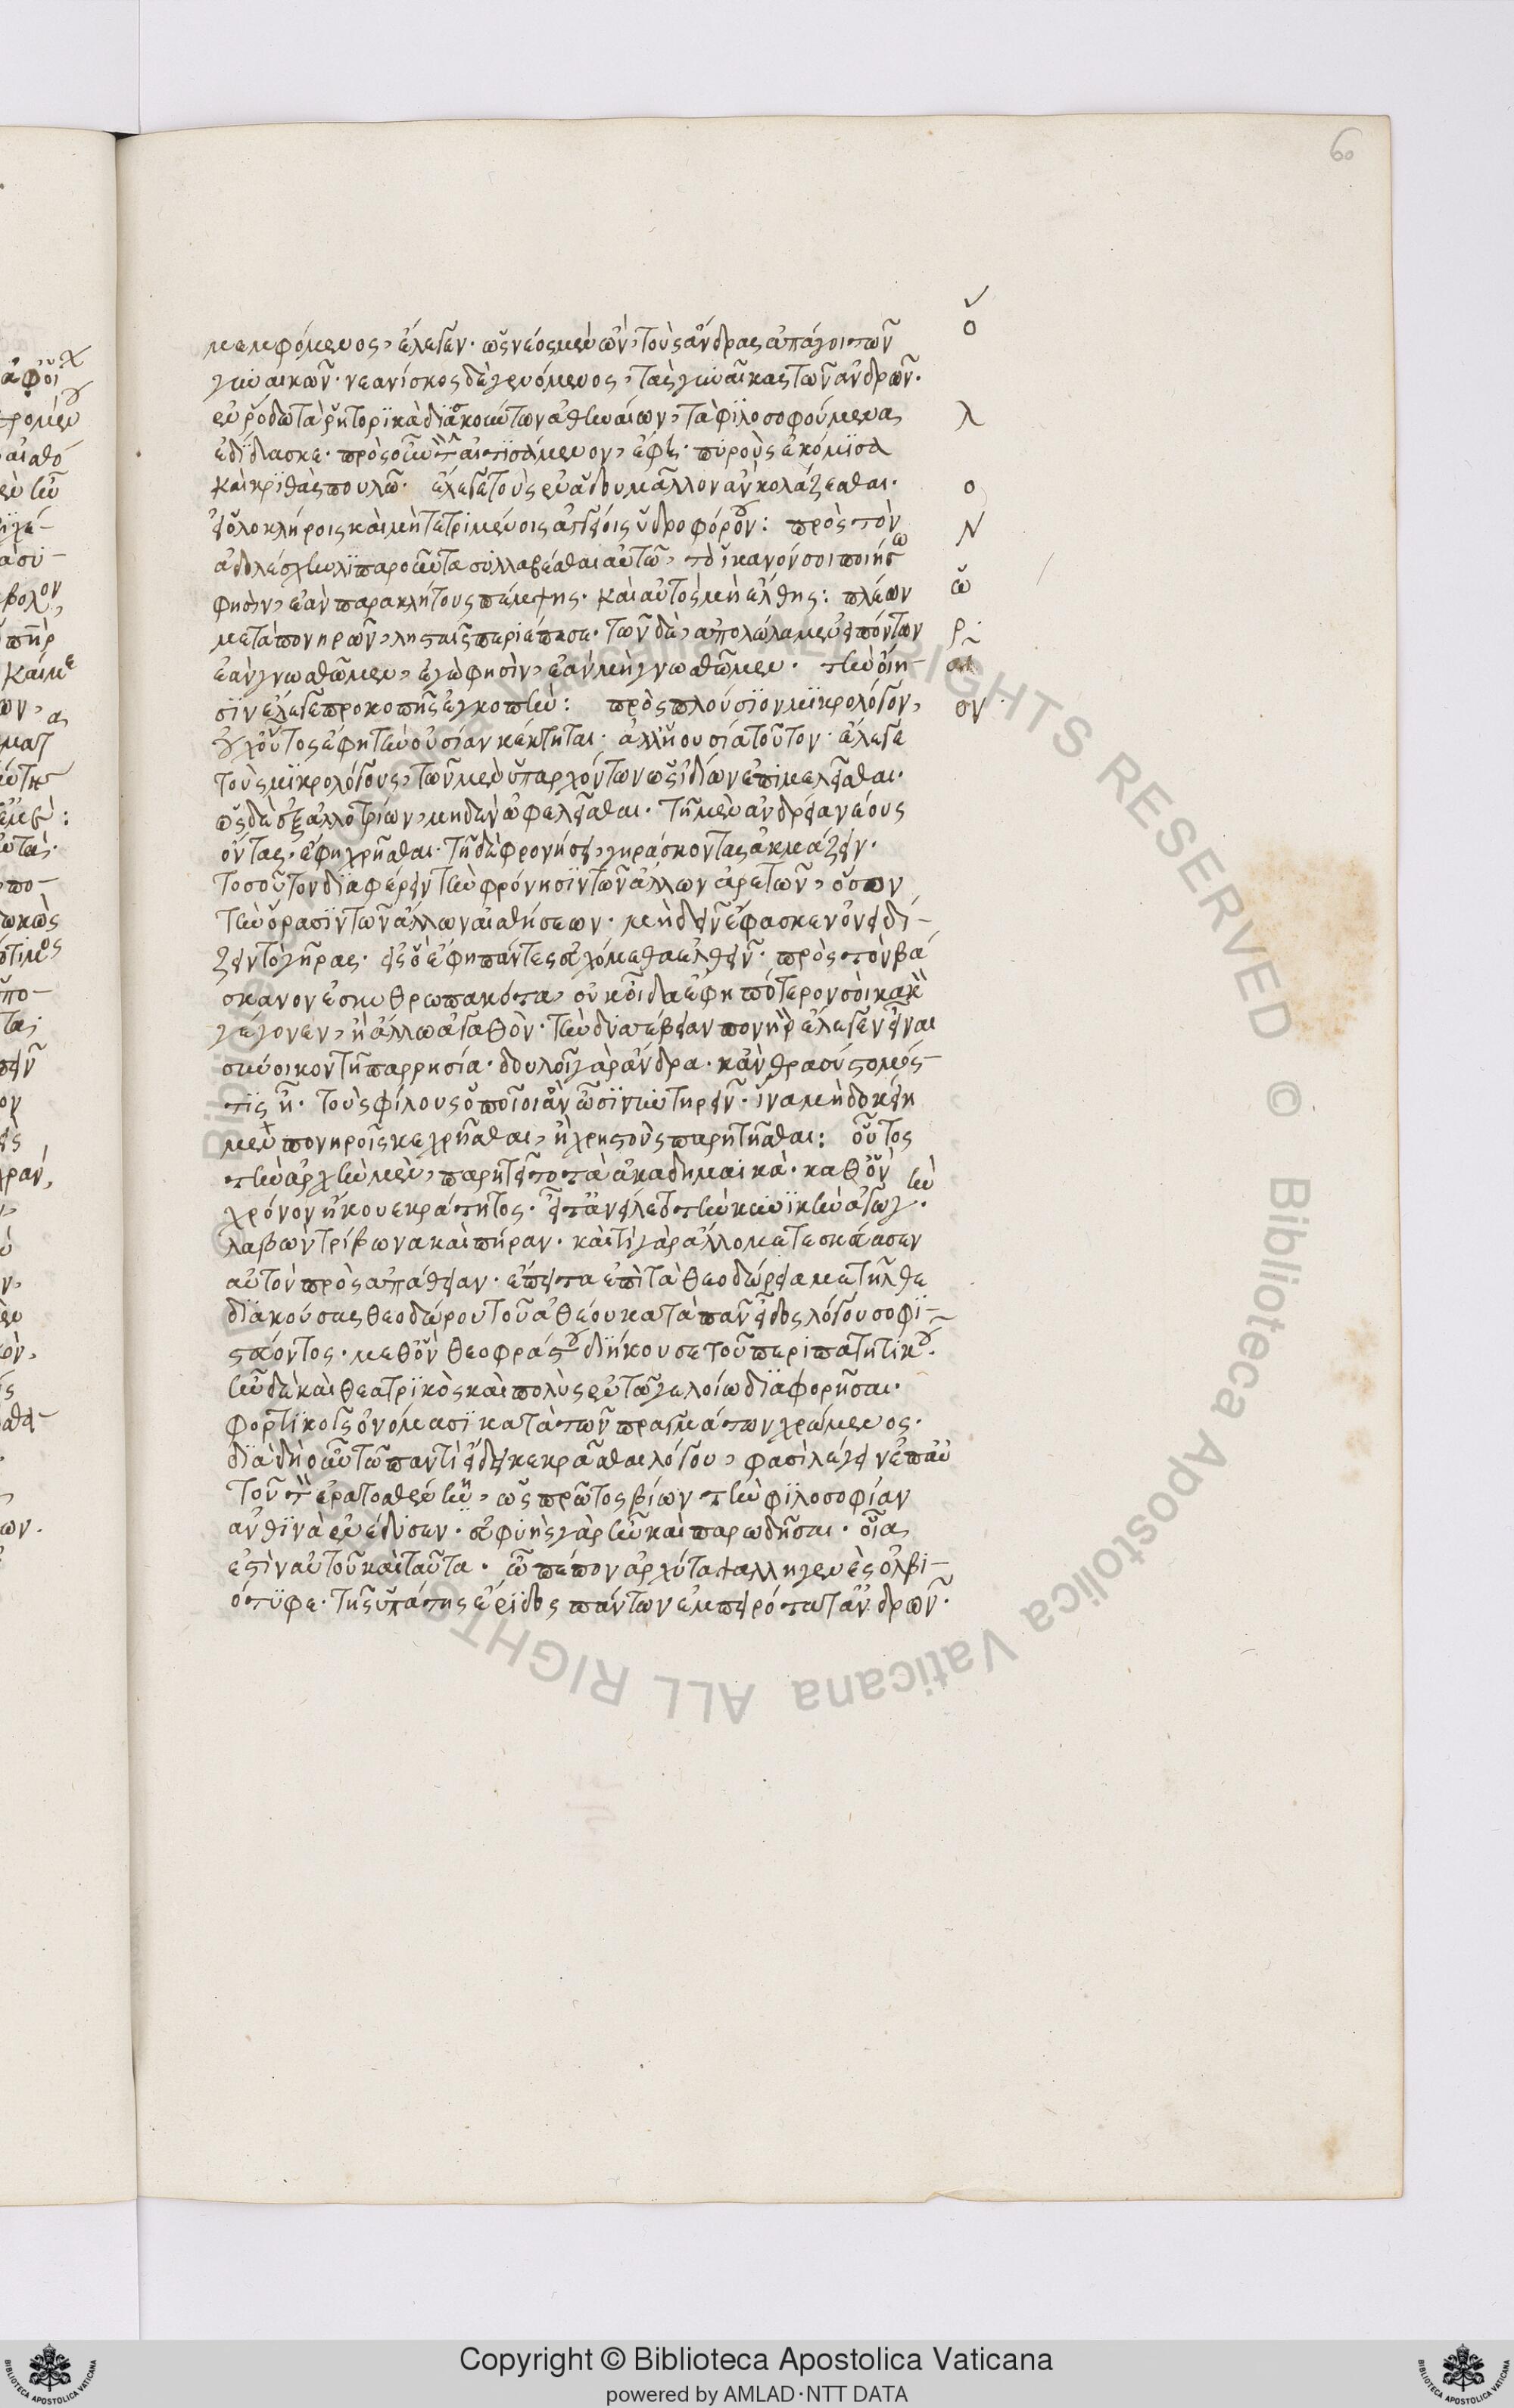 60
μεμφόμενος, ἔλεγεν· ὡς νέος μὲν ὢν, τοὺς ἄνδρας ἀπάγοι τῶν
γυναικῶν· νεανίσκος δὲ γενόμενος, τὰς γυναῖκας τῶν ἀνδρῶν·
ἐν ῥόδω τὰ ῥητορικὰ διασκούντων ἀθηναίων, τὰ φιλοσοφούμενα
ἐδίδασκε· πρὸς οὖν τὸν αἰτιασάμενον, ἔφη· πυροὺς ἐκόμισα
καὶ κριθὰς πουλῶ· ἔλεγε τοὺς ἐν ᾅδου μᾶλλον ἂν κολάζεσθαι·
εἰ ὁλοκλήροις καὶ μὴ τετριμένοις ἀγγείοις ὑδροφόρουν: πρὸς τὸν
ἀδολέσχην λιπαροῦντα συλλαβέσθαι αὐτῶ, τὸ ἱκανόν σοι ποιήσω
φησὶν, ἐὰν παρακλήτους πέμψης· καὶ αὐτὸς μὴ ἔλθης: πλέων
μετὰ πονηρῶν, λησταῖς περιέπεσε· τῶν δὲ, ἀπολώλαμεν εἰπόντων
ἐὰν γνωσθῶμεν, ἐγὼ φησὶν, ἐὰν μὴ γνωσθῶμεν· τὴν οἴη-
σιν ἔλεγε προκοπῆς ἐγκοπὴν: πρὸς πλούσιον μικρολόγον,
οὐχ οὗτος ἔφη τὴν οὐσίαν κέκτηται· ἀλλ' ἡ οὐσία τοῦτον· ἔλεγε
τοὺς μικρολόγους, τῶν μὲν ὑπαρχόντων ὡς ἰδίων ἐπιμελεῖσθαι·
ὡς δὲ ἐξ ἀλλοτρίων, μηδὲν ὠφελεῖσθαι· τῆ μὲν ἀνδρεία νέους
ὄντας, ἔφη χρῆσθαι· τῆ δὲ φρονήσει, γηράσκοντας ἀκμάζειν·
τοσοῦτον διαφέρειν τὴν φρόνησιν τῶν ἄλλων ἀρετῶν, ὅσον
τὴν ὅρασιν τῶν ἄλλων αἰσθήσεων· μὴ δεῖν ἔφασκεν ὀνειδί-
ζειν τὸ γῆρας· εἰς ὃ ἔφη πάντες εὐχόμεθα ἐλθεῖν· πρὸς τὸν βά
σκανον ἐσκυθρωπακότα, οὐκ οἶδα ἔφη πότερον σοὶ κακὸν
γέγονεν, ἢ ἄλλω ἀγαθὸν· τὴν δυσσέβειαν πονηρὰν ἔλεγεν εἶναι
σύνοικον τῆ παρρησία· δουλοῖ γὰρ ἄνδρα· κἂν θρασύστομός
τις ἦ· τοὺς φίλους ὁποῖοι ἂν ὦσιν συντηρεῖν· ἵνα μὴ δοκείη
μεν πονηροῖς κεχρῆσθαι, ἢ χρηστοὺς παρητῆσθαι: οὗτος
τὴν ἀρχὴν μὲν, παρητεῖτο τὰ ἀκαδημαικὰ· καθ' ὃν
χρόνον ἤκουε κράτητος· εἶτ' ἀνείλετο τὴν κυνικὴν ἀγωγ·ὴν
λαβὼν τρίβωνα καὶ πήραν· καὶ τί γὰρ ἄλλο μετεσκεύασεν
αὐτὸν πρὸς ἀπάθειαν· ἔπειτα ἐπὶ τὰ θεοδώρεια μετῆλθε
διακούσας θεοδώρου τοῦ ἀθέου κατὰ πᾶν εἶδος λόγου σοφι-
στεύοντος· μεθ' ὃν θεοφράστου διήκουσε τοῦ περιπατητικοῦ·
ἦν δὲ καὶ θεατρικὸς καὶ πολὺς ἐν τῶ γελοίω διαφορῆσαι·
φορτικοῖς ὀνόμασι κατὰ τῶν πραγμάτων χρώμενος·
διὰ δὴ οὖν τῶ παντὶ εἴδει κεκρᾶσθαι λόγου, φασὶ λέγειν ἐπ' αὐ
τοῦ τὸν ἐρατοσθένην, ὡς πρῶτος βίων τὴν φιλοσοφίαν
ἀνθινὰ ἐνέδυσεν· εὐφυὴς γὰρ ἦν καὶ παρωδῆσαι· οἷα
ἐστὶν αὐτοῦ καὶ ταῦτα· ὦ πέπον ἀρχύτα ψαλληγενὲς ὀλβι-
ότυφε· τῆς ὑπάτης ἔριδος πάντων ἐμπειρότατ' ἀνδρῶν·
Copyright © Biblioteca Apostolica Vaticana
powered by AMLAD·NTT DATA